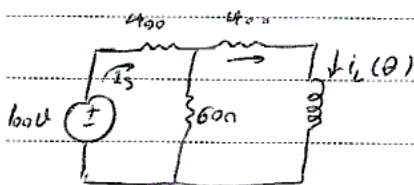 400 40Ω
Is ↓ iL (θ)
100V + - 60Ω